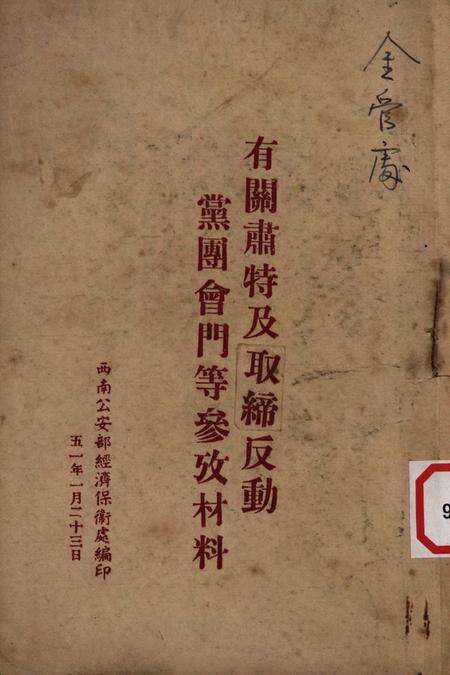 金管處
有關肅特及取締反動
黨團會門等參攷材料
西南公安部經濟保衛處編印
五一年一月二十三日
9